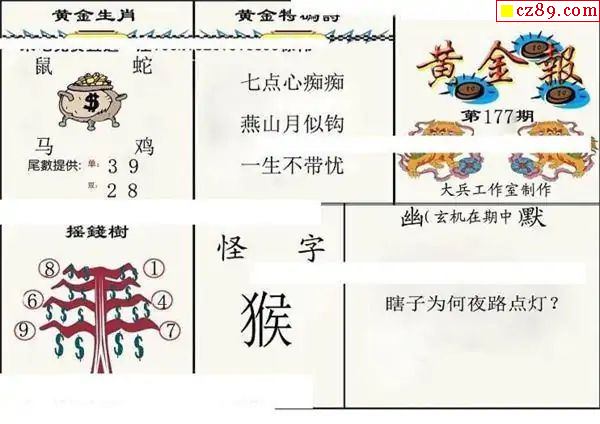 cz89.com
黄金生肖
鼠 蛇
$
马 鸡
尾數提供: 单: 3 9
双: 2 8
黄金特碼詩
七点心痴痴
燕山月似钩
一生不带忧
黄金報
第177期
大兵工作室制作
摇錢樹
⑧ ①
⑥ ④
⑨ ⑦
怪 字
猴
幽(玄机在期中)默
瞎子为何夜路点灯?